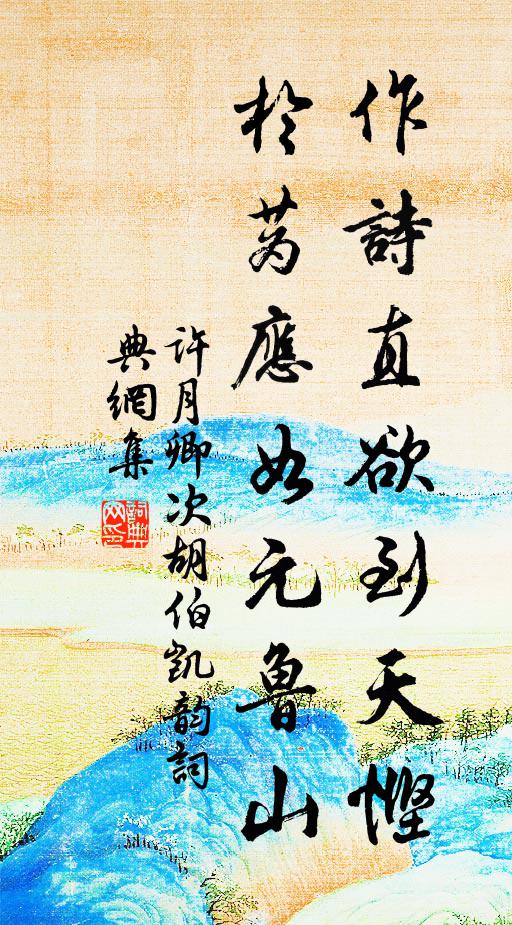 作詩直欲到天慳
於蒍應如元魯山
許月卿次胡伯凱韵詞
典網集
詞典
网印